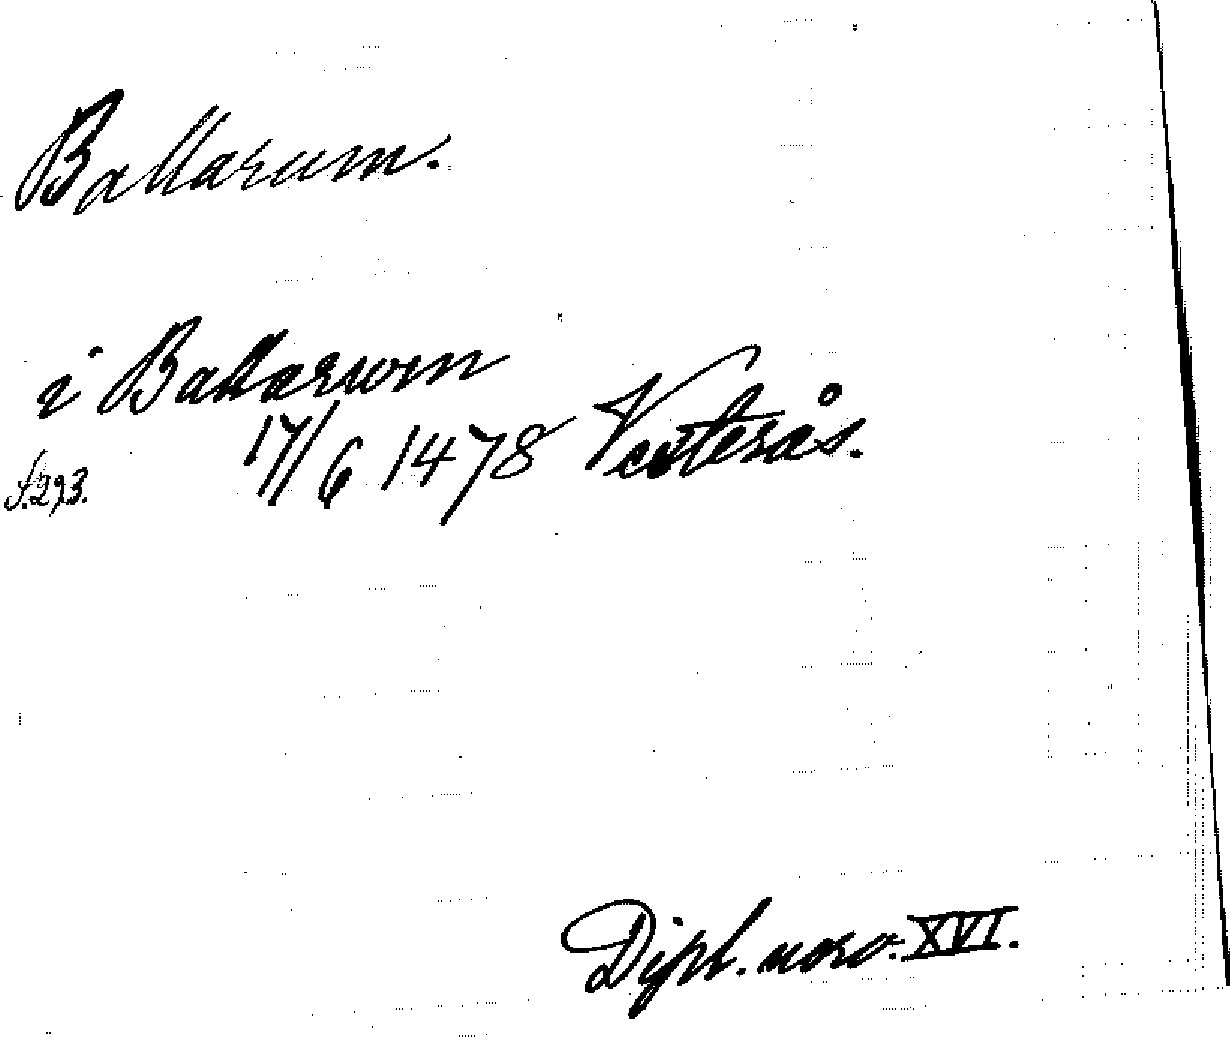 Ballarum.
i Ballarwm
17/6 1478 Vesterås.
s. 293.
Dipl. norv. XVI.